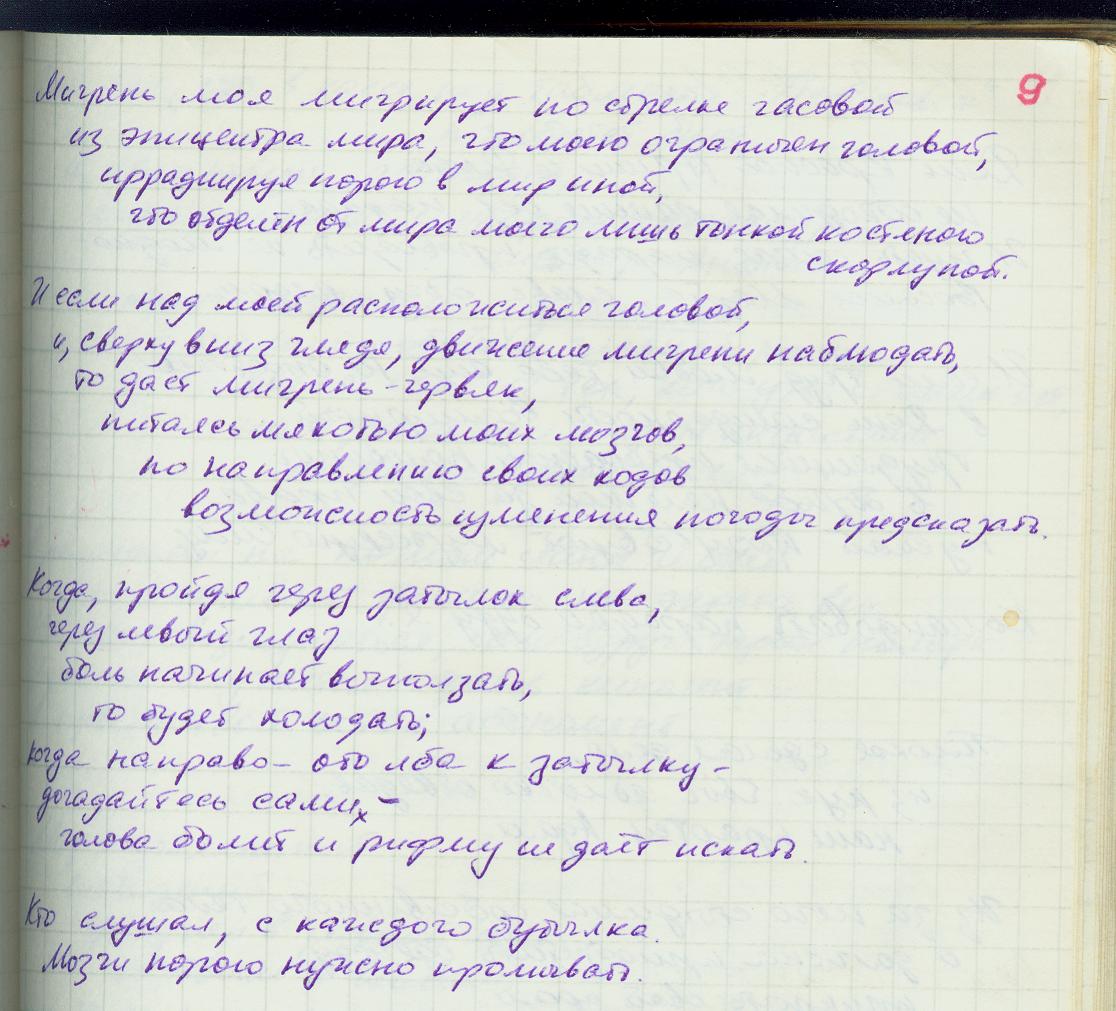 9
Мигрень моя мигрирует по стрелке часовой
из эпицентра мира, что моею ограничен головой,
иррадиируя порою в мир иной,
что отделён от мира моего лишь тонкой костяною
скорлупой.
И если над моей расположиться головой,
и, сверху вниз глядя, движение мигрени наблюдать,
то даст мигрень-червяк,
питаясь мякотью моих мозгов,
по направлению своих ходов
возможность изменения погоды предсказать.
Когда, пройдя через затылок слева,
через левый глаз
боль начинает выползать,
то будет холодать;
когда направо – ото лба к затылку –
догадайтесь сами, –
голова болит и рифму не даёт искать.
Кто слушал, с каждого бутылка.
Мозги порою нужно промывать.